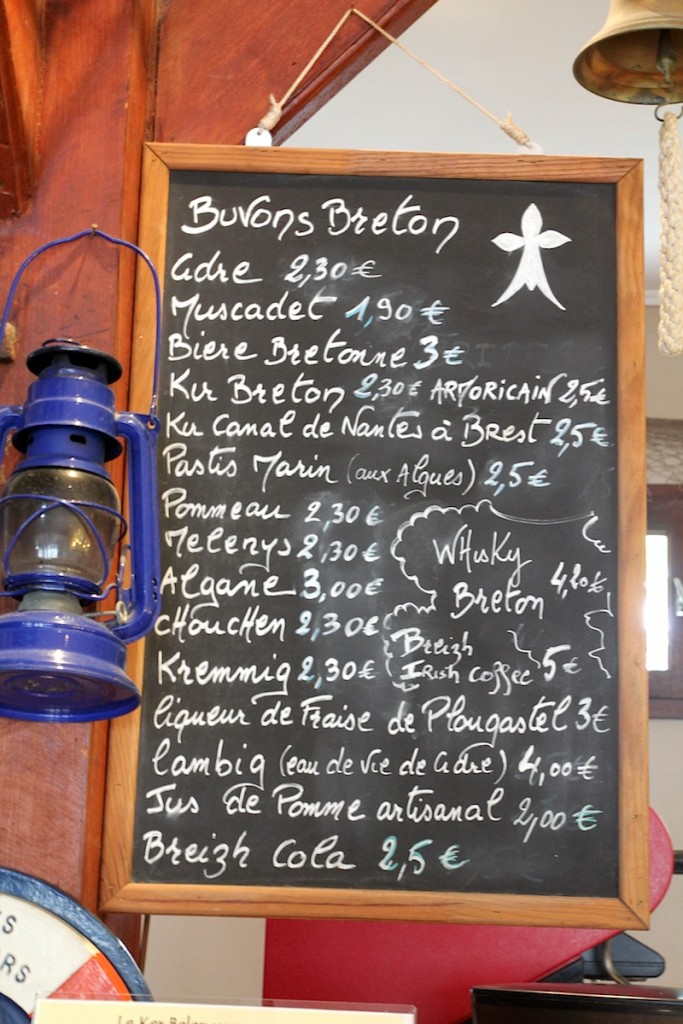 Buvons Breton
Cidre 2,30 €
Muscadet 1,90 €
Bière Bretonne 3 €
Kir Breton 2,30 € ARMORICAIN 2,5 €
Kir Canal de Nantes à Brest 2,5 €
Pastis Marin (aux Algues) 2,5 €
Pommeau 2,30 €
Melenys 2,30 €
Algane 3,00 €
CHouCHen 2,30 €
Kremmig 2,30 €
WHisky
Breton 4,20 €
Breizh
IRish coffee 5 €
liqueur de Fraise de Plougastel 3 €
lambig (eau de vie de cidre) 4,00 €
Jus de Pomme artisanal 2,00 €
Breizh Cola 2,5 €